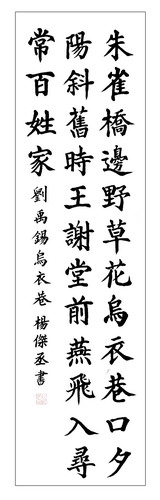 朱雀橋邊野草花烏衣巷口夕
陽斜舊時王謝堂前燕飛入尋
常百姓家
劉禹錫烏衣巷 楊傑丞書